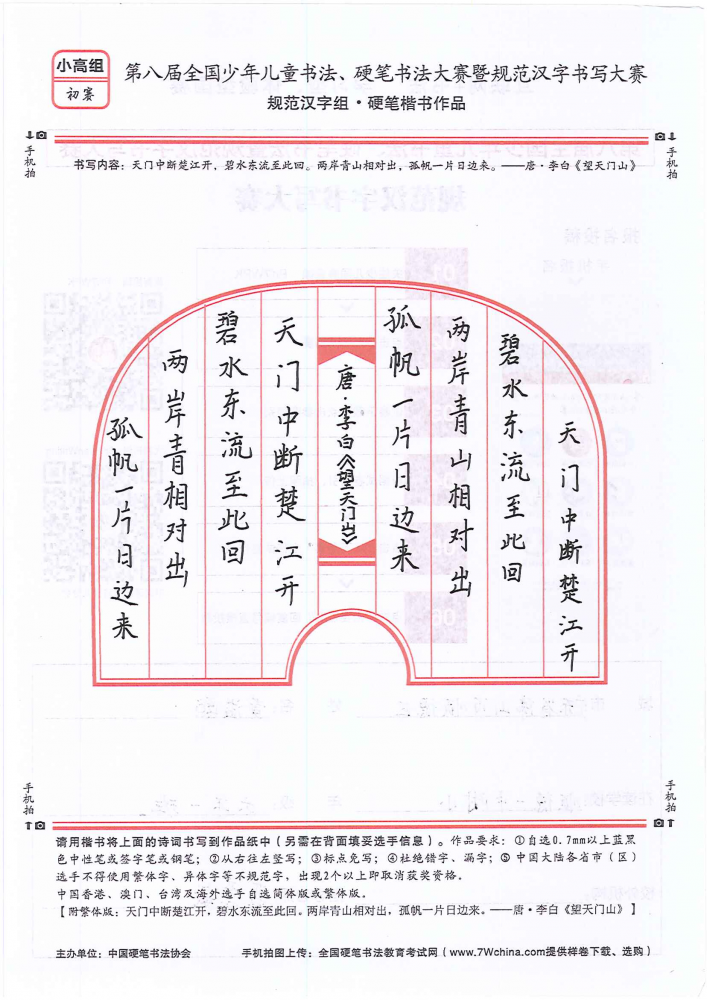 小高组
初赛
第八届全国少年儿童书法、硬笔书法大赛暨规范汉字书写大赛
规范汉字组·硬笔楷书作品
手机拍
手机拍
书写内容：天门中断楚江开，碧水东流至此回。两岸青山相对出，孤帆一片日边来。——唐·李白《望天门山》
天门中断楚江开
碧水东流至此回
两岸青山相对出
孤帆一片日边来
唐·李白《望天门山》
天门中断楚江开
碧水东流至此回
两岸青相对出
孤帆一片日边来
手机拍
手机拍
请用楷书将上面的诗词书写到作品纸中（另需在背面填妥选手信息）。作品要求：①自选0.7mm以上蓝黑
色中性笔或签字笔或钢笔；②从右往左竖写；③标点免写；④杜绝错字、漏字；⑤中国大陆各省市（区）
选手不得使用繁体字、异体字等不规范字，出现2个以上即取消获奖资格。
中国香港、澳门、台湾及海外选手自选简体版或繁体版。
【附繁体版：天门中断楚江开，碧水东流至此回。两岸青山相对出，孤帆一片日边来。——唐·李白《望天门山》】
主办单位：中国硬笔书法协会
手机拍图上传：全国硬笔书法教育考试网（www.7Wchina.com提供样卷下载、选购）